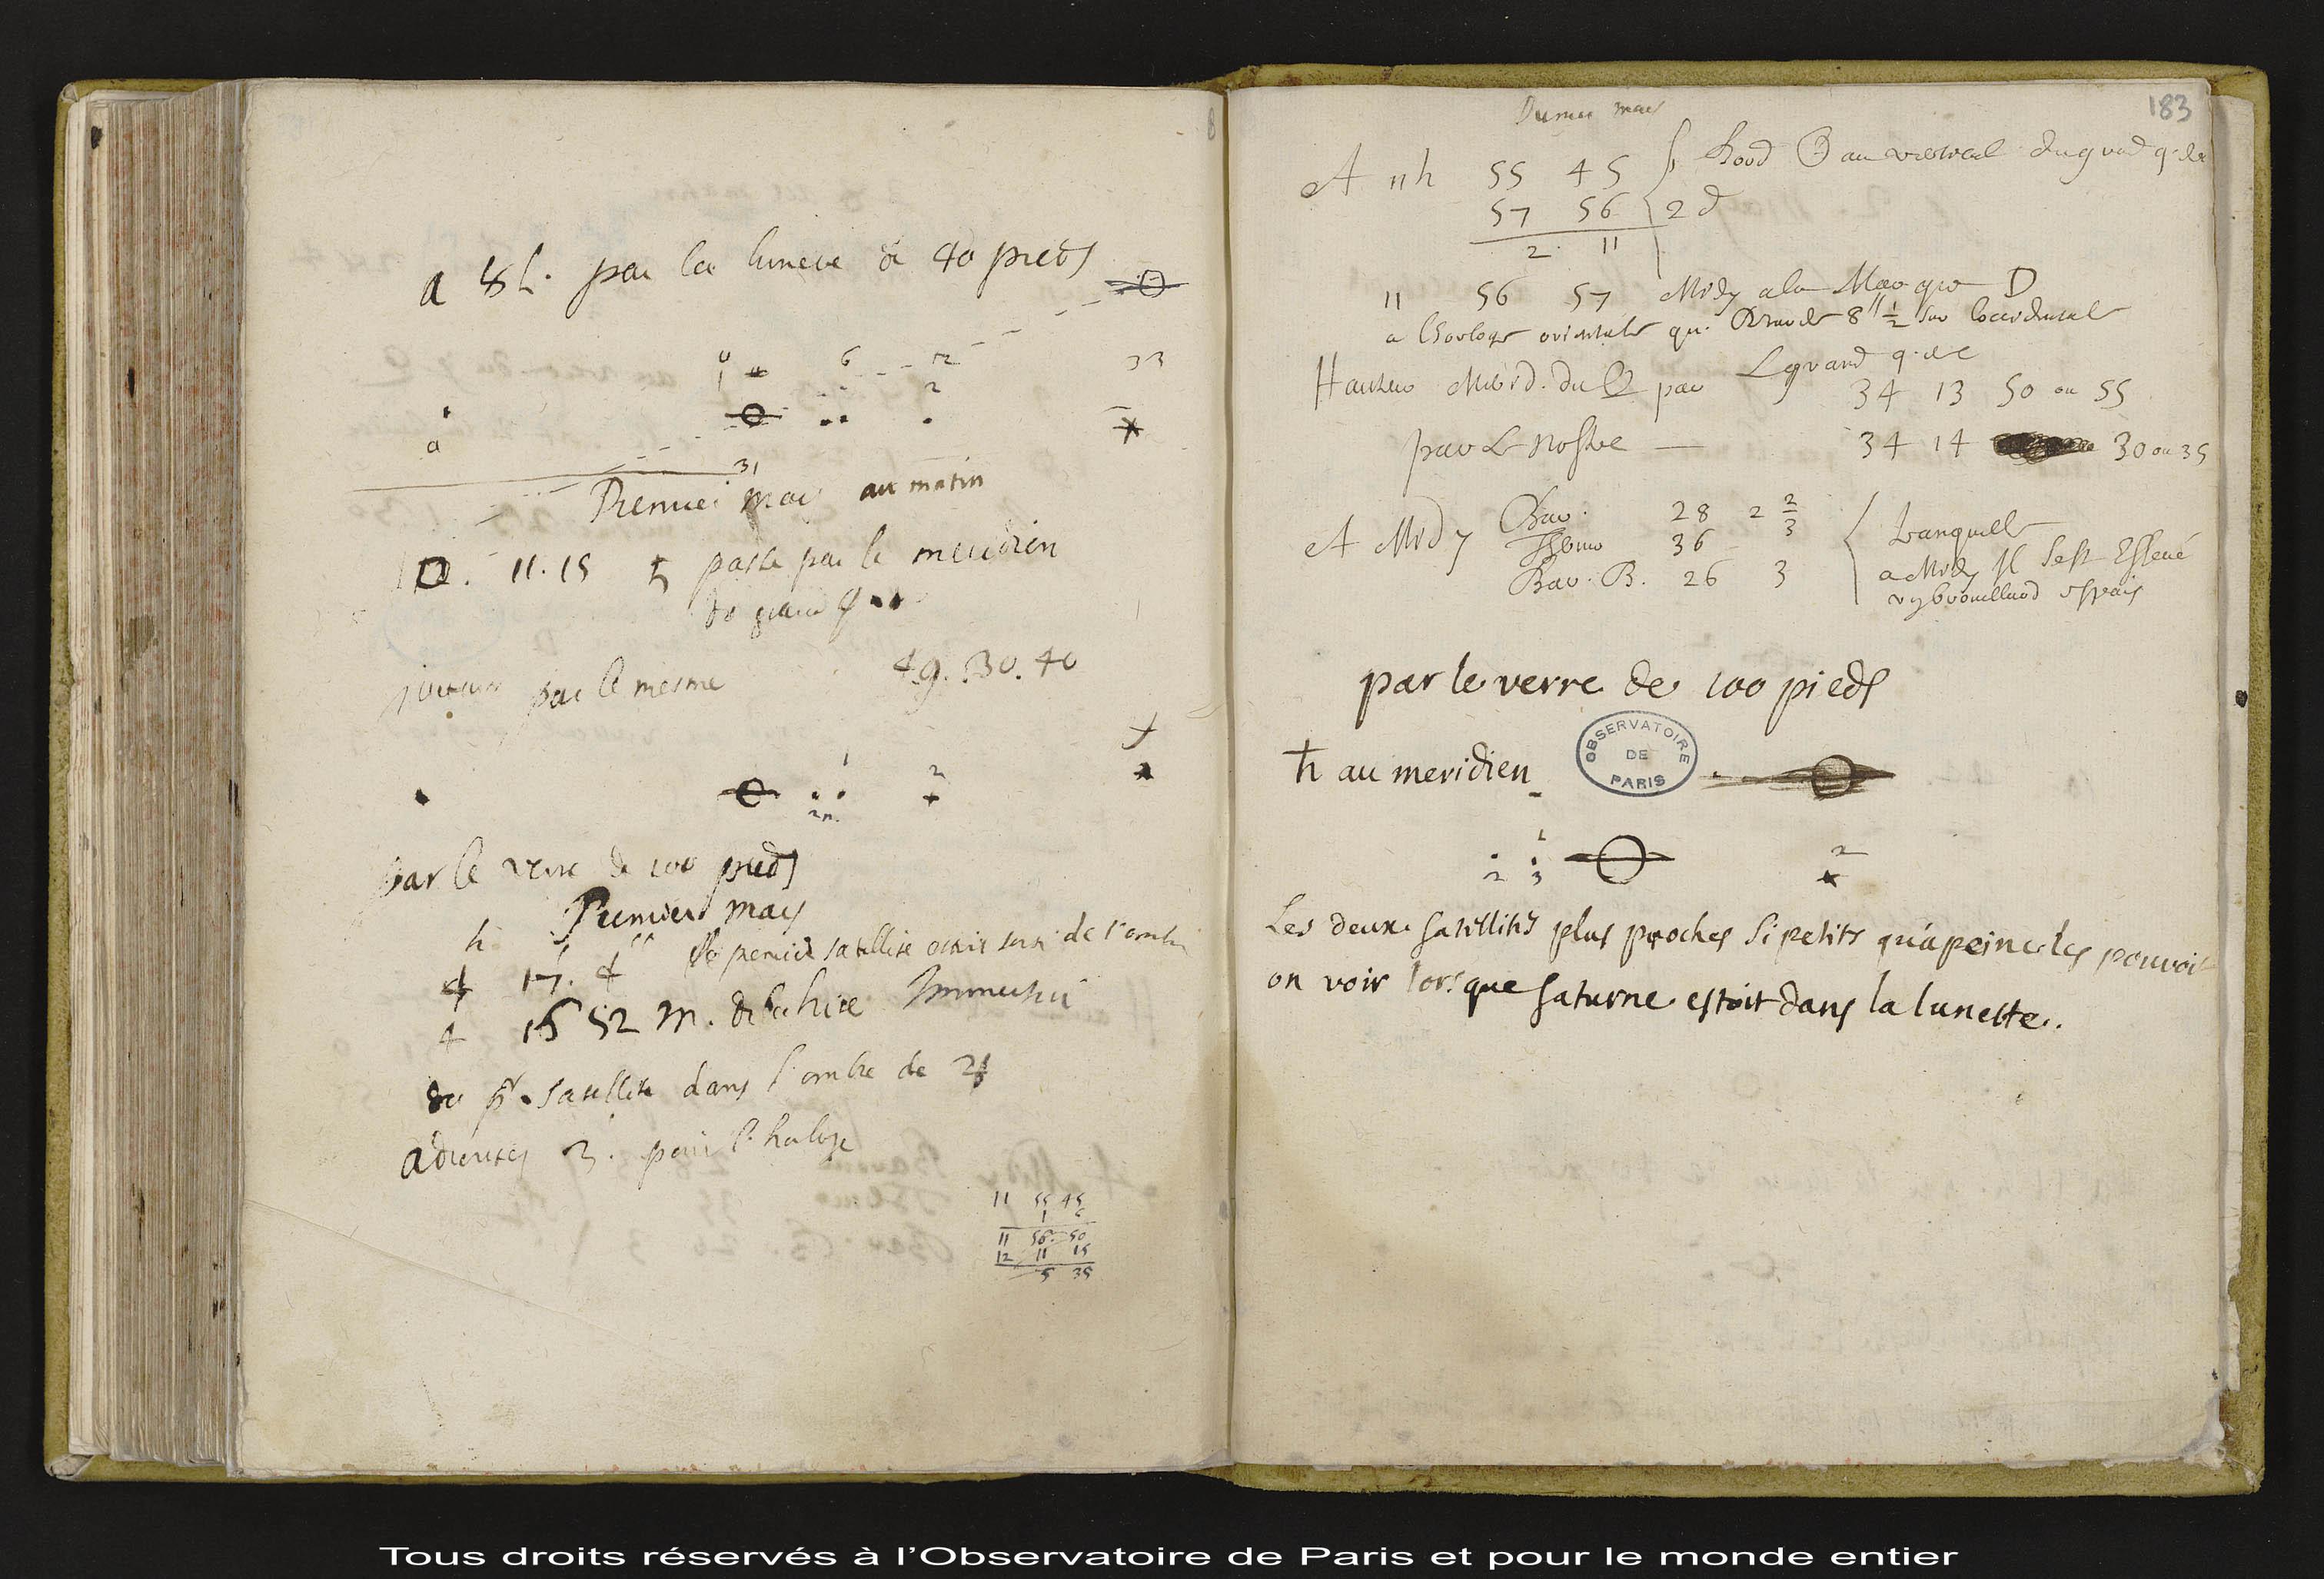 a 8 h. par la lunete de 40 pieds
0 6 12 33
1 2
a
31
Premier may au matin
12. 11. 15 ♄ passe par le meridien
du grand q
par le mesme 49. 30. 40
1 2
par le verre de 100 pieds
Premier may
h ' ''
4 17. 4 le premier satellite estoit sorti de l'ombre
4 16 52 m. de la hire Immersion
du pr. satellite dans l'ombre de ♃
3. pour l'horloge
11 55 45
1 5
11 56 50
12 11 15
5 35
183
Premier may
A 11h 55 45 p. bord ☉ au vertical du grand q. de c
57 56 2 d
2 11
11 56 57 Midy a la Marque D
a l'horloge orientale qui 8'' 1/2 sur l'occidentale
Hauteur Merid. du ☉ par Le grand q. de c 34 13 50 ou 55
par Le nostre — 34 14 30 ou 35
A Midy Bar. 28 2 2/3 tranquille
Thermo 36 a Midy Il s'est Eslevé
Bar. B. 26 3 un brouillard espais
par le verre de 100 pieds
♄ au meridien
OBSERVATOIRE DE PARIS
1 2
2 3
Les deux satellites plus proches si petits qu'a peine les pouvoit
on voir lorsque saturne estoit dans la lunette.
Tous droits réservés à l'Observatoire de Paris et pour le monde entier